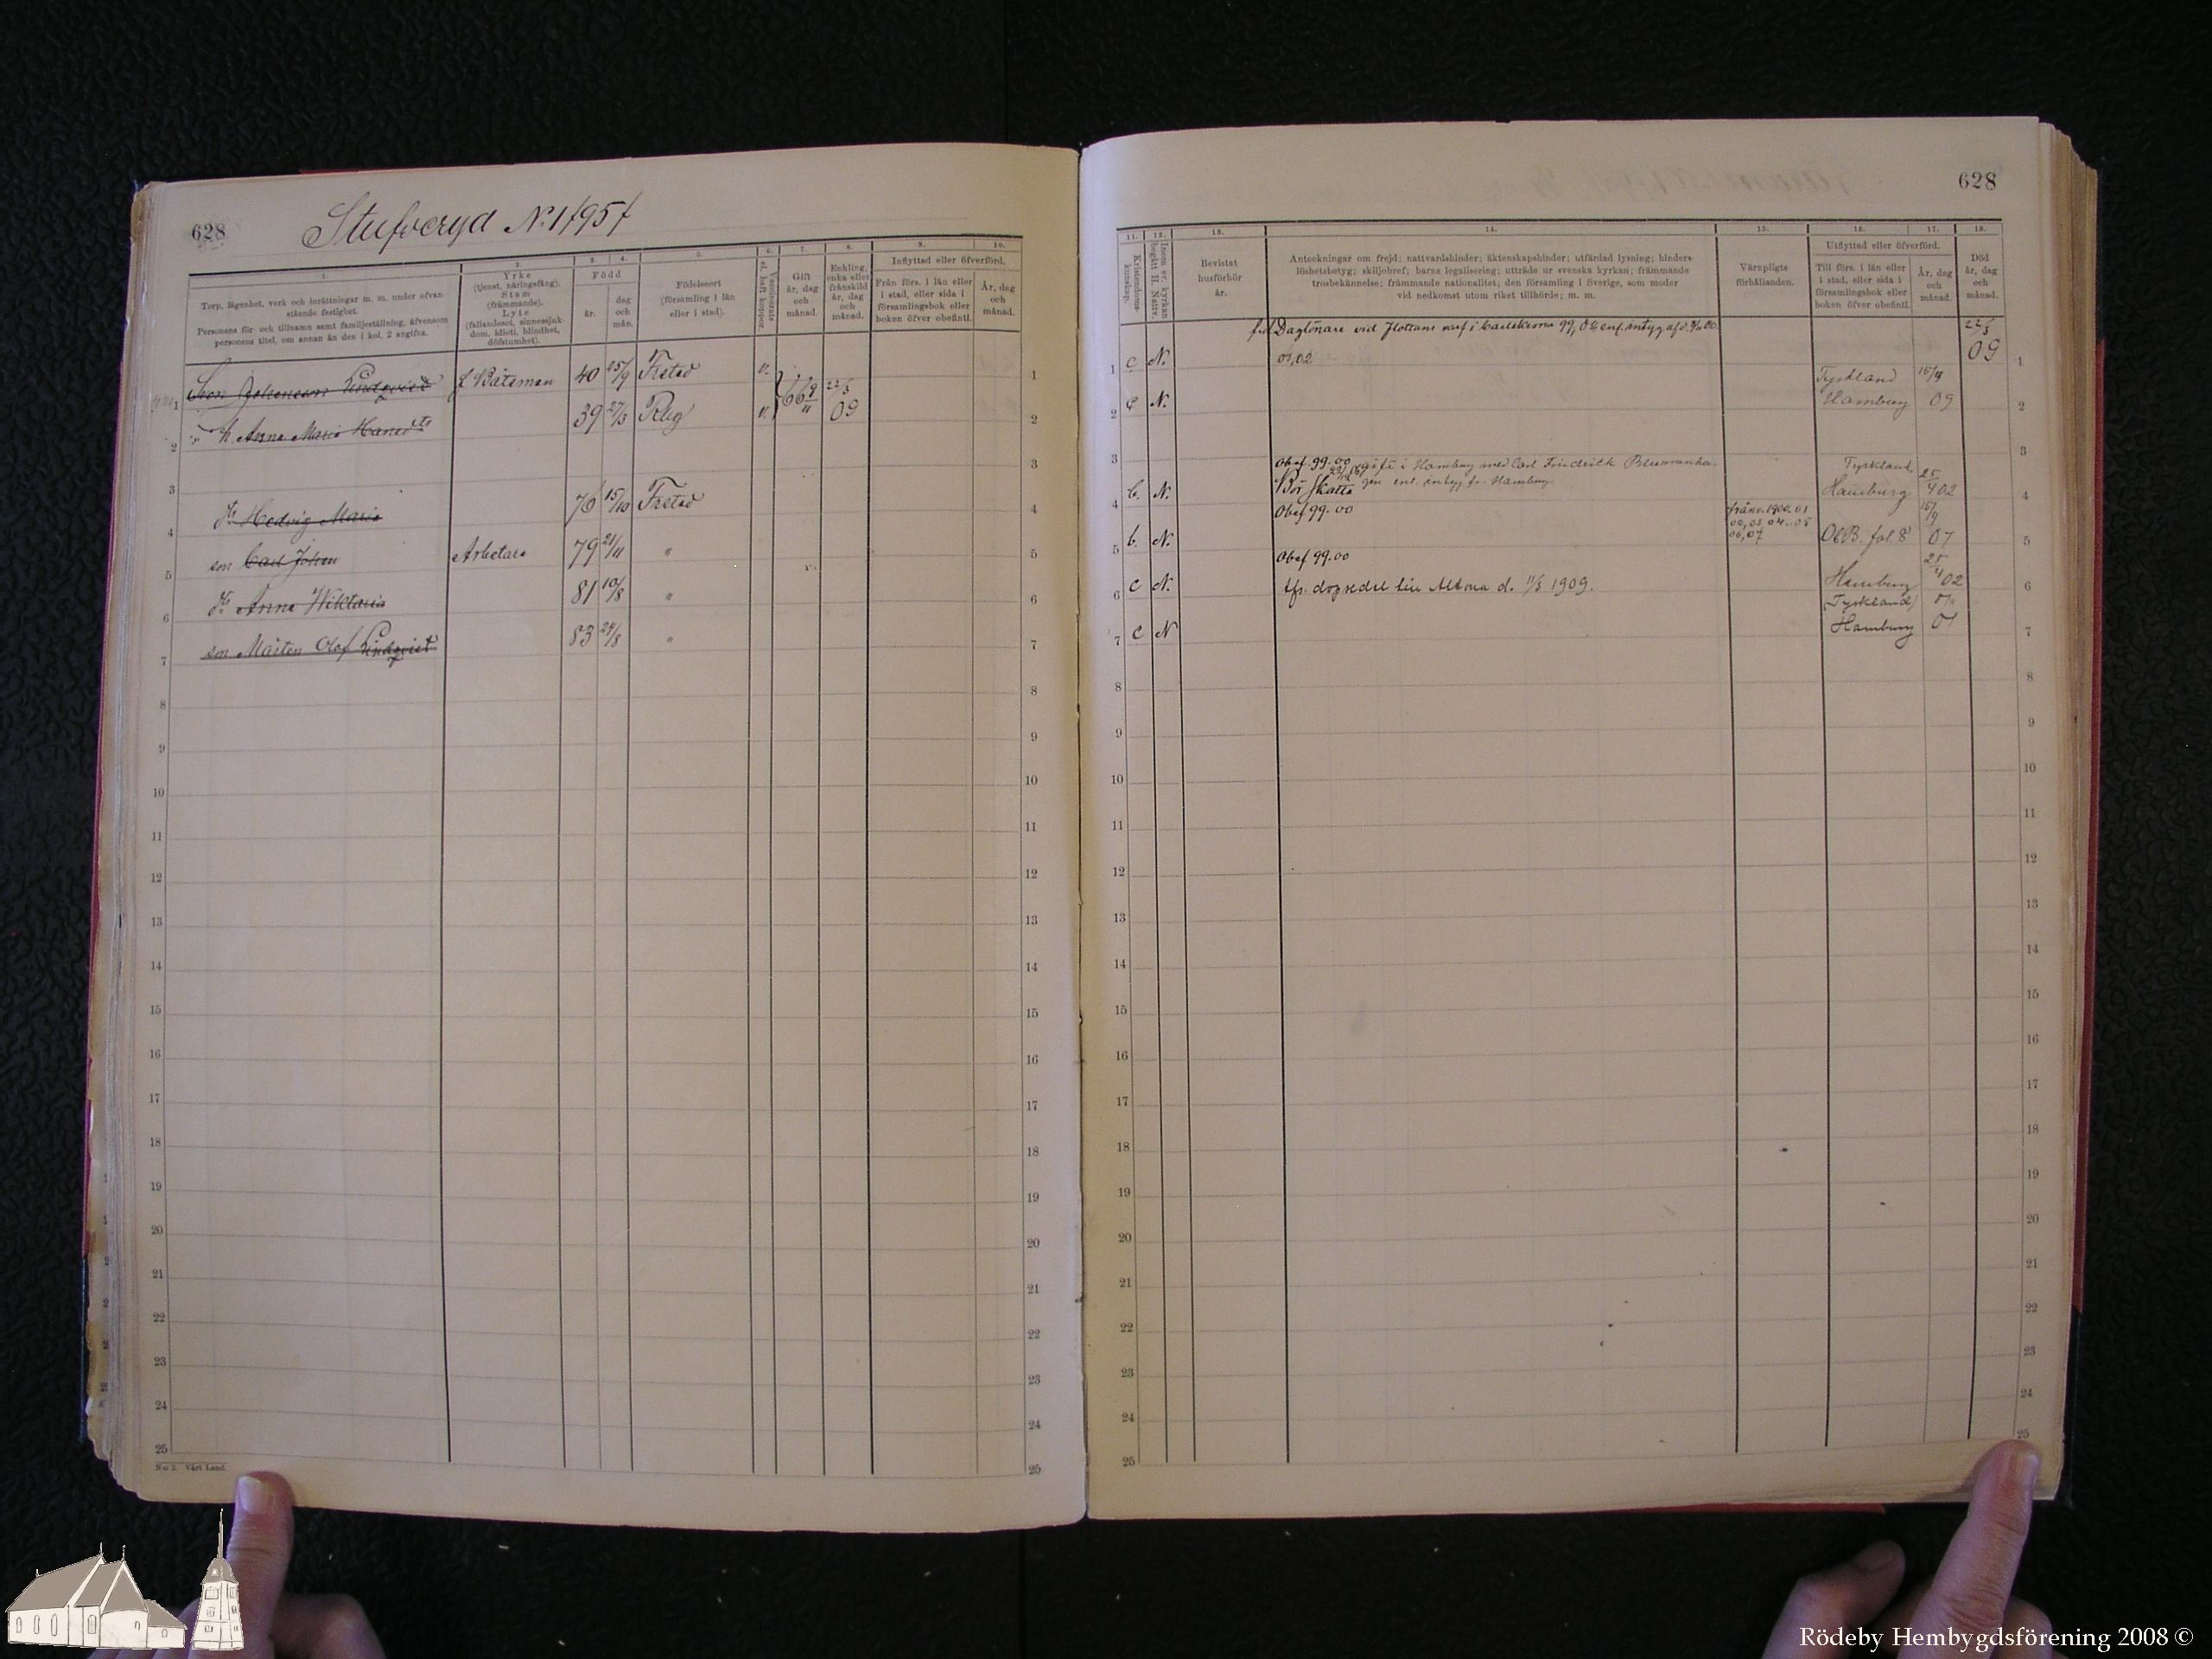 628
Stufveryd No 1 /95/
1. 2. 3. 4. 5. 6. 7. 8. 9. 10.
Torp, lägenhet, verk och inrättningar m. m. under ofvan-
stående fastighet.
Personens för- och tillnamn samt familjeställning, äfvensom
personens titel, om annan än den i kol. 2 angifna.
Yrke
(tjenst, näringsfång).
Stam
(främmande).
Lyte
(fallandesot, sinnessjuk-
dom, idioti, blindhet,
döfstumhet).
Född
år.
dag
och
mån.
Födelseort
(församling i län
eller i stad).
Vaccinerats
el. haft koppor.
Gift
år, dag
och
månad.
Enkling,
enka eller
frånskild
år, dag
och
månad.
Inflyttad eller öfverförd.
Från förs. i län eller
i stad, eller sida i
församlingsbok eller
boken öfver obefintl.
År, dag
och
månad.
1 Sven Johansson Lindqvist f Båtsman 40 15/9 Fristad v. 66 9/11 22/3 09 1
2 h. Anna Maria Hansdtr 39 27/3 v. 2
3 3
4 dr Hedvig Maria 76 15/10 Fristad 4
5 son Carl Johan Arbetare 79 21/11 " 5
6 dr Anna Wiktoria 81 10/8 " 6
7 son Mårten Olof Lindqvist 83 24/8 " 7
8 8
9 9
10 10
11 11
12 12
13 13
14 14
15 15
16 16
17 17
18 18
19 19
20 20
21 21
22 22
23 23
24 24
25 25
N:o 2. Vårt Land.
628
11. 12. 13. 14. 15. 16. 17. 18.
Kristendoms-
kunskap.
Inom sv. kyrkan
begått H. Nattv.
Bevistat
husförhör
år.
Anteckningar om frejd; nattvardshinder; äktenskapshinder; utfärdad lysning; hinders-
löshetsbetyg; skiljobref; barns legalisering; utträde ur svenska kyrkan; främmande
trosbekännelse; främmande nationalitet; den församling i Sverige, som moder
vid nedkomst utom riket tillhörde; m. m.
Värnpligts
förhållanden.
Utflyttad eller öfverförd.
Till förs. i län eller
i stad, eller sida i
församlingsbok eller
boken öfver obefintl.
År, dag
och
månad.
Död
år, dag
och
månad.
Daglönare vid flottans varf i Carlskrona 99, 00 enl. intyg af d.
22/3
1 c N. 01,02 09 1
Tyskland 15/4
2 c N. Hamburg 09 2
3 3
Obef. 99.00 gift i Hamburg med Carl Friedrich
Tyskland
4 b. N. Bör skatta enl. intyg fr. Hamburg Hamburg 25/4 02 4
Obef 99.00
från v. 1900. 01
02, 03, 04. 05
06, 07
5 b. N. ObB. fol. 8 07 5
Obef 99.00
6 c N. Hamburg 25/4 02 6
tfr. dopsedel till Altona d. 11/3 1909.
(Tyskland)
7 c N Hamburg 7
8 8
9 9
10 10
11 11
12 12
13 13
14 14
15 15
16 16
17 17
18 18
19 19
20 20
21 21
22 22
23 23
24 24
25 25
Rödeby Hembygdsförening 2008 ©